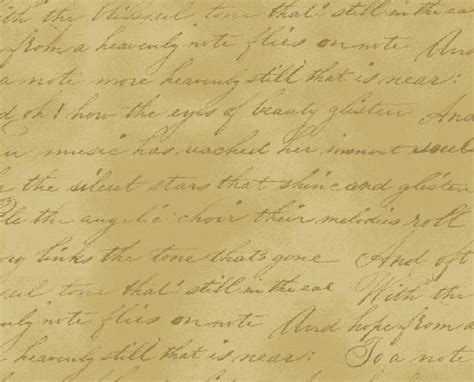 ith the blissful tone that's still in the ear
from a heavenly note flies on note And
a note more heavenly still that is near:
d oh! how the eyes of beauty glisten And
music has reached her inmost soul
e the silent stars that shine and glisten
le the angelic choir their melodies roll
links the tone that's gone And oft
sful tone that's still in the ear With the
nly note flies on note And hope from a
heavenly still that is near: To a note